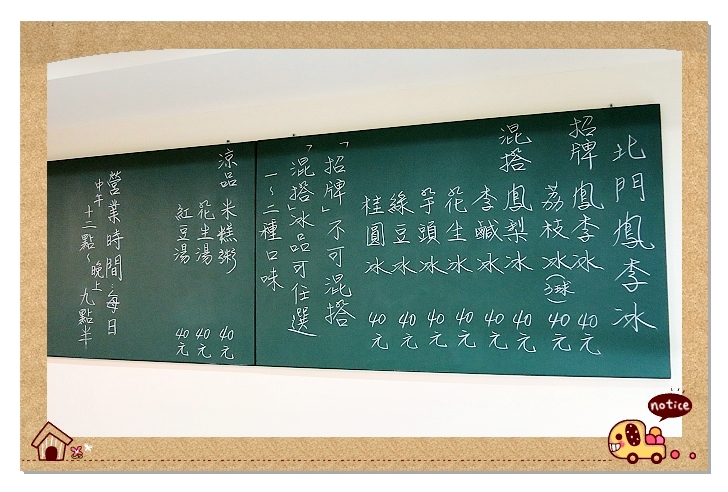 北門鳳李冰
招牌 鳳李冰 40元
荔枝冰(球) 40元
混搭 鳳梨冰 40元
李鹹冰 40元
花生冰 40元
芋頭冰 40元
綠豆冰 40元
桂圓冰 40元
「招牌」不可混搭
「混搭」冰品可任選
一~二種口味
涼品 米糕粥 40元
花生湯 40元
紅豆湯 40元
營業時間:每日
中午十二點~晚上九點半
notice